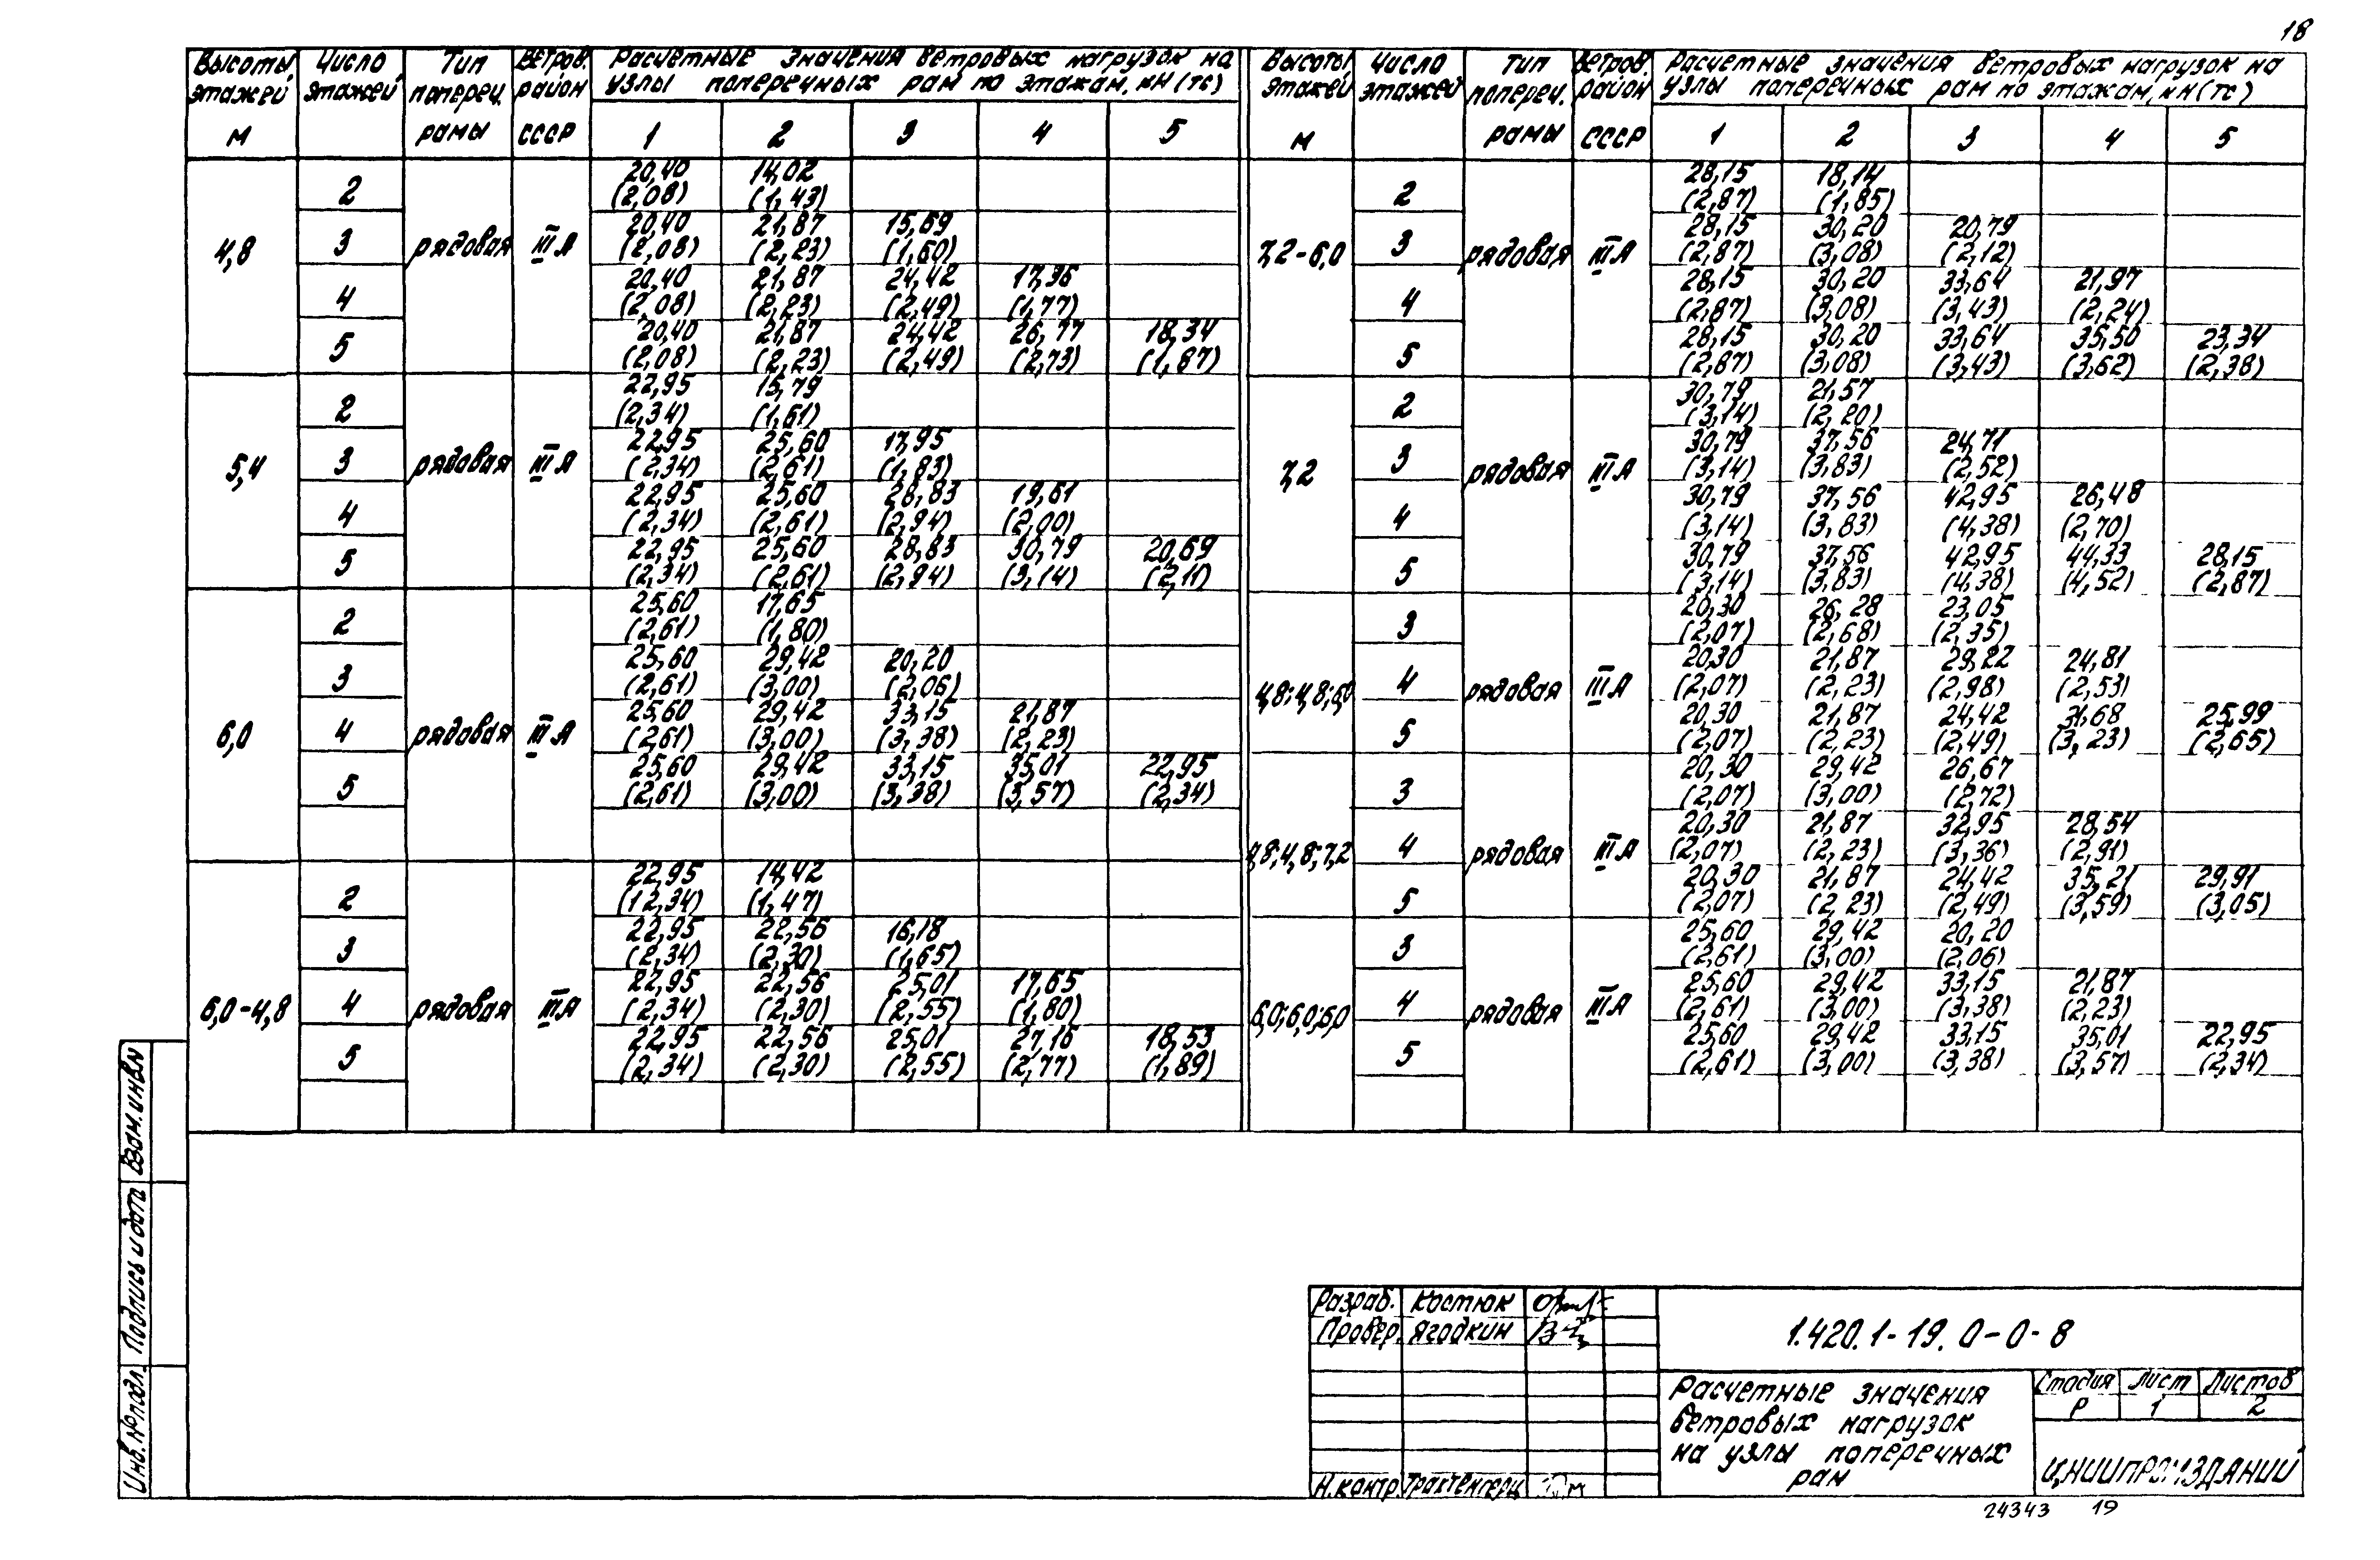 18
Высоты этажей, м | Число этажей | Тип попереч. рамы | Ветров. район СССР | Расчетные значения ветровых нагрузок на узлы поперечных рам по этажам, кН (тс)
1 | 2 | 3 | 4 | 5
4,8 | рядовая | III А
2 | 20,40 (2,08) | 14,02 (1,43)
3 | 20,40 (2,08) | 21,87 (2,23) | 15,69 (1,60)
4 | 20,40 (2,08) | 21,87 (2,23) | 24,42 (2,49) | 17,36 (1,77)
5 | 20,40 (2,08) | 21,87 (2,23) | 24,42 (2,49) | 26,77 (2,73) | 18,34 (1,87)
5,4 | рядовая | III А
2 | 22,95 (2,34) | 15,79 (1,61)
3 | 22,95 (2,34) | 25,60 (2,61) | 17,95 (1,83)
4 | 22,95 (2,34) | 25,60 (2,61) | 28,83 (2,94) | 19,61 (2,00)
5 | 22,95 (2,34) | 25,60 (2,61) | 28,83 (2,94) | 30,79 (3,14) | 20,69 (2,11)
6,0 | рядовая | III А
2 | 25,60 (2,61) | 17,65 (1,80)
3 | 25,60 (2,61) | 29,42 (3,00) | 20,20 (2,06)
4 | 25,60 (2,61) | 29,42 (3,00) | 33,15 (3,38) | 21,87 (2,23)
5 | 25,60 (2,61) | 29,42 (3,00) | 33,15 (3,38) | 35,01 (3,57) | 22,95 (2,34)
6,0-4,8 | рядовая | III А
2 | 22,95 (12,34) | 14,42 (1,47)
3 | 22,95 (2,34) | 22,56 (2,30) | 16,18 (1,65)
4 | 22,95 (2,34) | 22,56 (2,30) | 25,01 (2,55) | 17,65 (1,80)
5 | 22,95 (2,34) | 22,56 (2,30) | 25,01 (2,55) | 27,16 (2,77) | 18,53 (1,89)
Высоты этажей м | Число этажей | Тип попереч. рамы | Ветров. район СССР | Расчетные значения ветровых нагрузок на узлы поперечных рам по этажам, кН (тс)
1 | 2 | 3 | 4 | 5
7,2-6,0 | рядовая | III А
2 | 28,15 (2,87) | 18,14 (1,85)
3 | 28,15 (2,87) | 30,20 (3,08) | 20,79 (2,12)
4 | 28,15 (2,87) | 30,20 (3,08) | 33,64 (3,43) | 21,97 (2,24)
5 | 28,15 (2,87) | 30,20 (3,08) | 33,64 (3,43) | 35,50 (3,62) | 23,34 (2,38)
7,2 | рядовая | III А
2 | 30,79 (3,14) | 21,57 (2,20)
3 | 30,79 (3,14) | 37,56 (3,83) | 24,71 (2,52)
4 | 30,79 (3,14) | 37,56 (3,83) | 42,95 (4,38) | 26,48 (2,70)
5 | 30,79 (3,14) | 37,56 (3,83) | 42,95 (4,38) | 44,33 (4,52) | 28,15 (2,87)
4,8;4,8;6,0 | рядовая | III А
3 | 20,30 (2,07) | 26,28 (2,68) | 23,05 (2,35)
4 | 20,30 (2,07) | 21,87 (2,23) | 29,22 (2,98) | 24,81 (2,53)
5 | 20,30 (2,07) | 21,87 (2,23) | 24,42 (2,49) | 31,68 (3,23) | 25,99 (2,65)
4,8;4,8;7,2 | рядовая | III А
3 | 20,30 (2,07) | 29,42 (3,00) | 26,67 (2,72)
4 | 20,30 (2,07) | 21,87 (2,23) | 32,95 (3,36) | 28,54 (2,91)
5 | 20,30 (2,07) | 21,87 (2,23) | 24,42 (2,49) | 35,21 (3,59) | 29,91 (3,05)
6,0;6,0;6,0 | рядовая | III А
3 | 25,60 (2,61) | 29,42 (3,00) | 20,20 (2,06)
4 | 25,60 (2,61) | 29,42 (3,00) | 33,15 (3,38) | 21,87 (2,23)
5 | 25,60 (2,61) | 29,42 (3,00) | 33,15 (3,38) | 35,01 (3,57) | 22,95 (2,34)
Взам. инв №
Подпись и дата
Инв. № подл.
Разраб. | Костюк
Провер. | Ягодкин
Н. контр. | Трахтенгерц
1.420.1-19.0-0-8
Расчетные значения
ветровых нагрузок
на узлы поперечных
рам
Стадия | Лист | Листов
Р | 1 | 2
ЦНИИПРОМЗДАНИЙ
24343 19